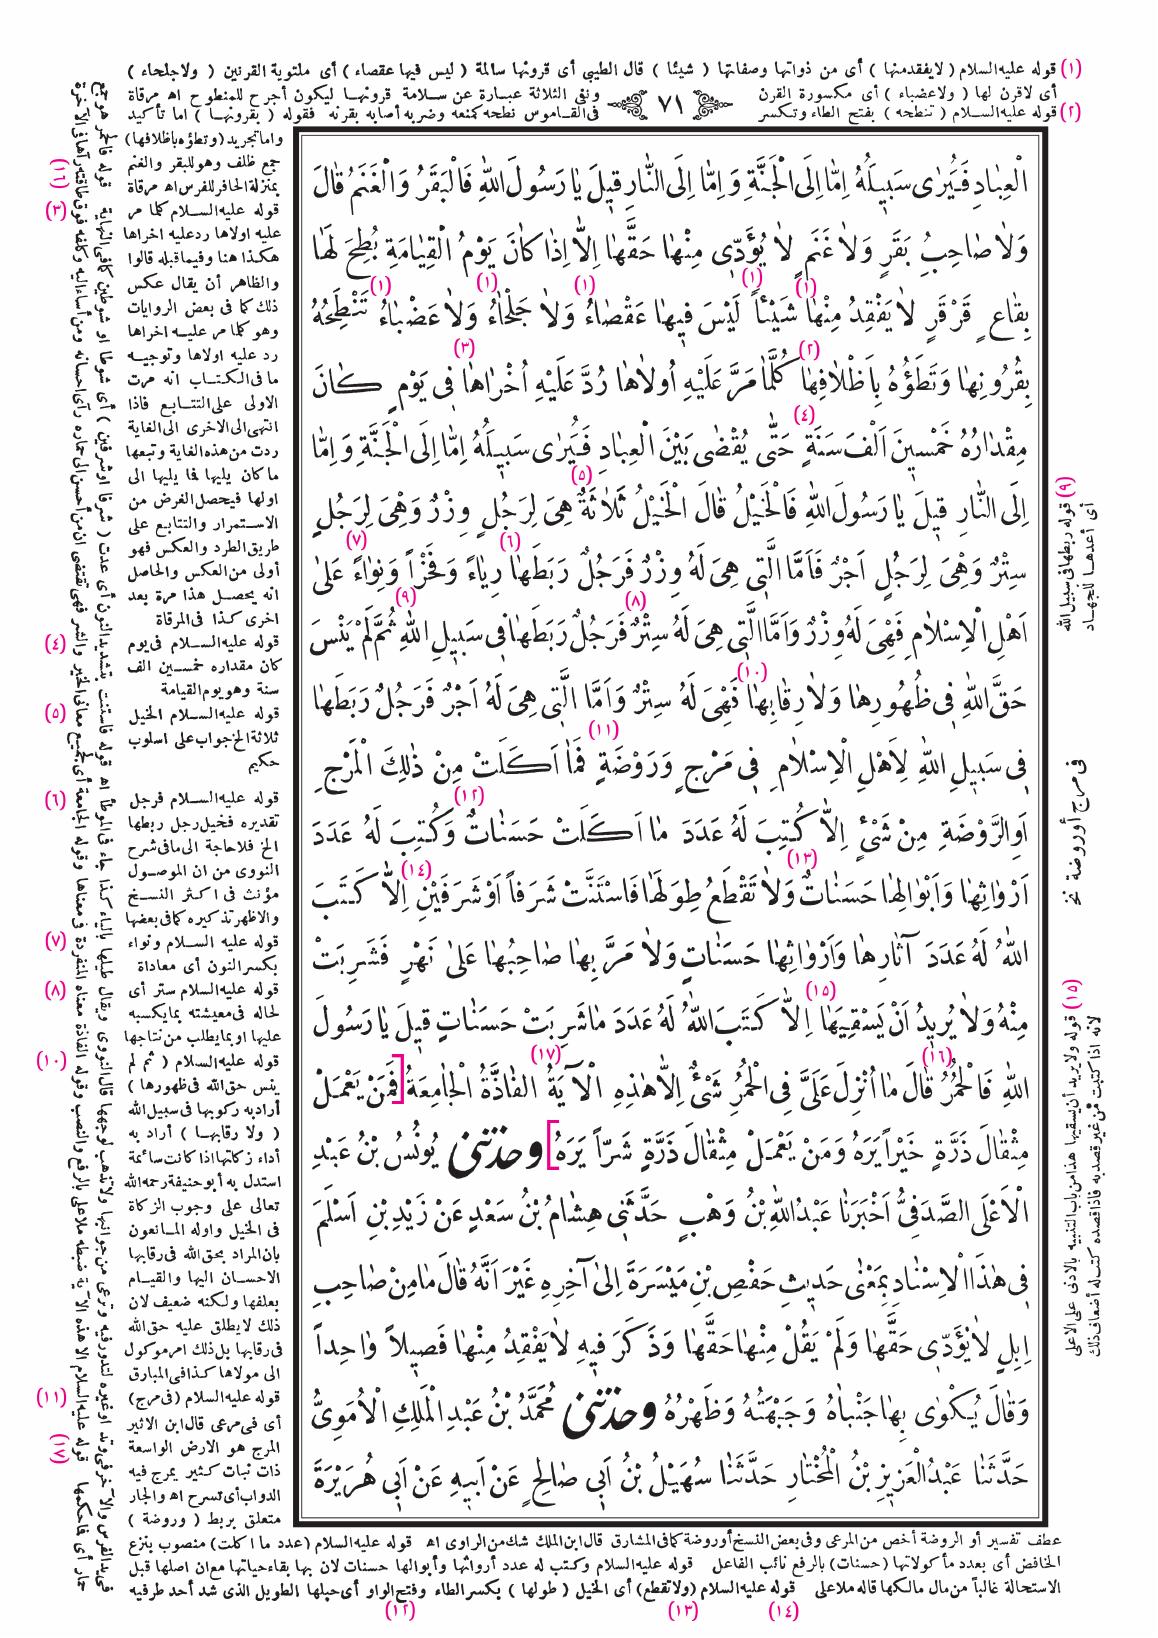 (١) قوله عليه السلام (لايفقدمنها) أى من ذواتها وصفاتها (شيئا) قال الطيبي أى قرونها سالمة (ليس فيها عقصاء) أى ملتوية القرنين (ولاجلحاء)
أى لاقرن لها (ولاعضباء) أى مكسورة القرن ونفى الثلاثة عبارة عن سلامة قرونها ليكون أجرح للمنطوح اه مرقاة
٧١
(٢) قوله عليه السلام (تنطحه) بفتح الطاء وتكسر فى القاموس نطحه كمنعه وضربه أصابه بقرنه فقوله (بقرونها) اما تأكيد
واما تجريد (وتطؤه باظلافها)
جمع ظلف وهو للبقر والغنم
بمنزلة الحافر للفرس اه مرقاة
(٣) قوله عليه السلام كلما مر
عليه اولاها رد عليه اخراها
هكذا هنا وفيما قبله قالوا
والظاهر أن يقال عكس
ذلك كما فى بعض الروايات
وهو كلما مر عليه اخراها
رد عليه اولاها وتوجيه
ما فى الكتاب انه مرت
الاولى على التتابع فاذا
انتهى الى الاخرى الى الغاية
ردت من هذه الغاية وتبعها
ما كان يليها فما يليها الى
اولها فيحصل الغرض من
الاستمرار والتتابع على
طريق الطرد والعكس فهو
أولى من العكس والحاصل
انه يحصل هذا مرة بعد
اخرى كذا فى المرقاة
(٤) قوله عليه السلام فى يوم
كان مقداره خمسين الف
سنة وهو يوم القيامة
(٥) قوله عليه السلام الخيل
ثلاثة الخ جواب على اسلوب
حكيم
(٦) قوله عليه السلام فرجل
تقديره فخيل رجل ربطها
الخ فلا حاجة الى ما فى شرح
النووى من ان الموصول
مؤنث فى اكثر النسخ
والاظهر تذكيره كما فى بعضها
(٧) قوله عليه السلام ونواء
بكسر النون أى معاداة
(٨) قوله عليه السلام ستر أى
لحاله فى معيشته بما يكسبه
عليها او بما يطلب من نتاجها
(١٠) قوله عليه السلام (ثم لم
ينس حق الله فى ظهورها)
أراد به ركوبها فى سبيل الله
(ولا رقابها) أراد به
أداء زكاتها اذا كانت سائمة
استدل به أبو حنيفة رحمه الله
تعالى على وجوب الزكاة
فى الخيل واوله المانعون
بان المراد بحق الله فى رقابها
الاحسان اليها والقيام
بعلفها ولكنه ضعيف لان
ذلك لا يطلق عليه حق الله
فى رقابها بل ذلك امر موكول
الى مولاها كذا فى المبارق
(١١) قوله عليه السلام (فى مرج)
أى فى مرعى قال ابن الاثير
المرج هو الارض الواسعة
ذات نبات كثير يمرج فيه
الدواب أى تسرح اه والجار
متعلق بربط (وروضة)
الْعِبَادِ فَيُرَى سَبِيلَهُ اِمَّا اِلَى الْجَنَّةِ وَ اِمَّا اِلَى النَّارِ قِيلَ يَا رَسُولَ اللهِ فَالْبَقَرُ وَالْغَنَمُ قَالَ
وَلَا صَاحِبُ بَقَرٍ وَلَا غَنَمٍ لَا يُؤَدِّى مِنْهَا حَقَّهَا اِلَّا اِذَا كَانَ يَوْمُ الْقِيَامَةِ بُطِحَ لَهَا
بِقَاعٍ قَرْقَرٍ لَا يَفْقِدُ مِنْهَا (١) شَيْئاً (١) لَيْسَ فِيهَا عَقْصَاءُ (١) وَلَا جَلْحَاءُ (١) وَلَا عَضْبَاءُ (١) تَنْطِحُهُ
بِقُرُونِهَا وَتَطَؤُهُ بِاَظْلَافِهَا (٢) كُلَّمَا مَرَّ عَلَيْهِ اُولَاهَا رُدَّ عَلَيْهِ اُخْرَاهَا (٣) فِى يَوْمٍ كَانَ
مِقْدَارُهُ خَمْسِينَ اَلْفَ سَنَةٍ (٤) حَتَّى يُقْضَى بَيْنَ الْعِبَادِ فَيُرَى سَبِيلَهُ اِمَّا اِلَى الْجَنَّةِ وَ اِمَّا
اِلَى النَّارِ قِيلَ يَا رَسُولَ اللهِ فَالْخَيْلُ قَالَ الْخَيْلُ ثَلَاثَةٌ (٥) هِىَ لِرَجُلٍ وِزْرٌ وَهْىَ لِرَجُلٍ
سِتْرٌ وَهْىَ لِرَجُلٍ اَجْرٌ فَاَمَّا الَّتِى هِىَ لَهُ وِزْرٌ فَرَجُلٌ رَبَطَهَا (٦) رِيَاءً وَفَخْراً وَنِوَاءً (٧) عَلَى
اَهْلِ الْاِسْلَامِ فَهْىَ لَهُ وِزْرٌ وَاَمَّا الَّتِى هِىَ لَهُ سِتْرٌ (٨) فَرَجُلٌ رَبَطَهَا فِى سَبِيلِ اللهِ (٩) ثُمَّ لَمْ يَنْسَ
حَقَّ اللهِ فِى ظُهُورِهَا وَلَا رِقَابِهَا (١٠) فَهْىَ لَهُ سِتْرٌ وَاَمَّا الَّتِى هِىَ لَهُ اَجْرٌ فَرَجُلٌ رَبَطَهَا
فِى سَبِيلِ اللهِ لِاَهْلِ الْاِسْلَامِ فِى مَرْجٍ وَرَوْضَةٍ (١١) فَمَا اَكَلَتْ مِنْ ذٰلِكَ الْمَرْجِ
اَوِ الرَّوْضَةِ مِنْ شَىْءٍ اِلَّا كُتِبَ لَهُ عَدَدَ مَا اَكَلَتْ حَسَنَاتٌ (١٢) وَكُتِبَ لَهُ عَدَدَ
اَرْوَاثِهَا وَاَبْوَالِهَا حَسَنَاتٌ (١٣) وَلَا تَقْطَعُ طِوَلَهَا فَاسْتَنَّتْ شَرَفاً اَوْ شَرَفَيْنِ (١٤) اِلَّا كَتَبَ
اللهُ لَهُ عَدَدَ آثَارِهَا وَاَرْوَاثِهَا حَسَنَاتٍ وَلَا مَرَّ بِهَا صَاحِبُهَا عَلَى نَهْرٍ فَشَرِبَتْ
مِنْهُ وَلَا يُرِيدُ اَنْ يَسْقِيَهَا (١٥) اِلَّا كَتَبَ اللهُ لَهُ عَدَدَ مَا شَرِبَتْ حَسَنَاتٍ قِيلَ يَا رَسُولَ
اللهِ فَالْحُمُرُ (١٦) قَالَ مَا اُنْزِلَ عَلَىَّ فِى الْحُمُرِ شَىْءٌ اِلَّا هٰذِهِ الْآيَةُ الْفَاذَّةُ (١٧) الْجَامِعَةُ [فَمَنْ يَعْمَلْ
مِثْقَالَ ذَرَّةٍ خَيْراً يَرَهُ وَمَنْ يَعْمَلْ مِثْقَالَ ذَرَّةٍ شَرّاً يَرَهُ] وحدثنى يُونُسُ بْنُ عَبْدِ
الْاَعْلَى الصَّدَفِىُّ اَخْبَرَنَا عَبْدُ اللهِ بْنُ وَهْبٍ حَدَّثَنِى هِشَامُ بْنُ سَعْدٍ عَنْ زَيْدِ بْنِ اَسْلَمَ
فِى هٰذَا الْاِسْنَادِ بِمَعْنَى حَدِيثِ حَفْصِ بْنِ مَيْسَرَةَ اِلَى آخِرِهِ غَيْرَ اَنَّهُ قَالَ مَا مِنْ صَاحِبِ
اِبِلٍ لَا يُؤَدِّى حَقَّهَا وَلَمْ يَقُلْ مِنْهَا حَقَّهَا وَذَكَرَ فِيهِ لَا يَفْقِدُ مِنْهَا فَصِيلاً وَاحِداً
وَقَالَ يُكْوَى بِهَا جَنْبَاهُ وَجَبْهَتُهُ وَظَهْرُهُ وحدثنى مُحَمَّدُ بْنُ عَبْدِ الْمَلِكِ الْاُمَوِىُّ
حَدَّثَنَا عَبْدُ الْعَزِيزِ بْنُ الْمُخْتَارِ حَدَّثَنَا سُهَيْلُ بْنُ اَبِى صَالِحٍ عَنْ اَبِيهِ عَنْ اَبِى هُرَيْرَةَ
(٩) قوله ربطها فى سبيل الله
أى أعدها للجهاد
فى مرج أو روضة نخ
(١٥) قوله ولا يريد أن يسقيها هذا من باب التنبيه بالادنى على الاعلى
لانه اذا كتبت من غير قصد به فاذا قصده كتب له أضعاف ذلك
عطف تفسير أو الروضة أخص من المرعى وفى بعض النسخ أو روضة كما فى المشارق قال ابن الملك شك من الراوى اه قوله عليه السلام (عدد ما اكلت) منصوب بنزع
الخافض أى بعدد مأكولاتها (حسنات) بالرفع نائب الفاعل قوله عليه السلام وكتب له عدد أروائها وأبوالها حسنات لان بها بقاء حياتها مع ان اصلها قبل
الاستحالة غالباً من مال مالكها قاله ملا على قوله عليه السلام (ولا تقطع) أى الخيل (طولها) بكسر الطاء وفتح الواو أى حبلها الطويل الذى شد أحد طرفيه
(١٤) (١٣) (١٢)
(١٦)
(١٧)